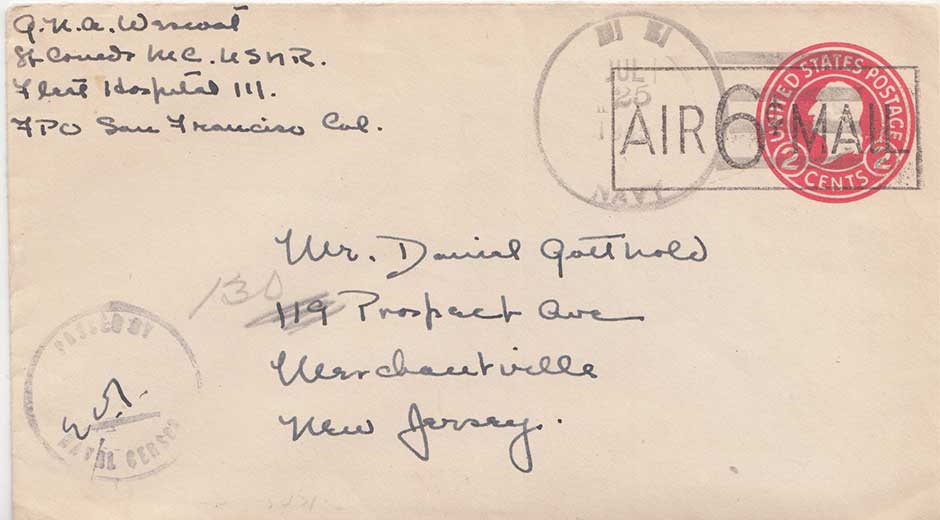 G.N.A. Wescoat
Lt Comdr MC. USNR.
Fleet Hospital 111.
FPO San Francisco Cal.
JUL 1
25
NAVY
AIR 6 MAIL
UNITED STATES POSTAGE
2 CENTS 2
Mr. Daniel Gotthold
130
119 Prospect Ave
Merchantville
New Jersey.
PASSED BY
NAVAL CENSOR